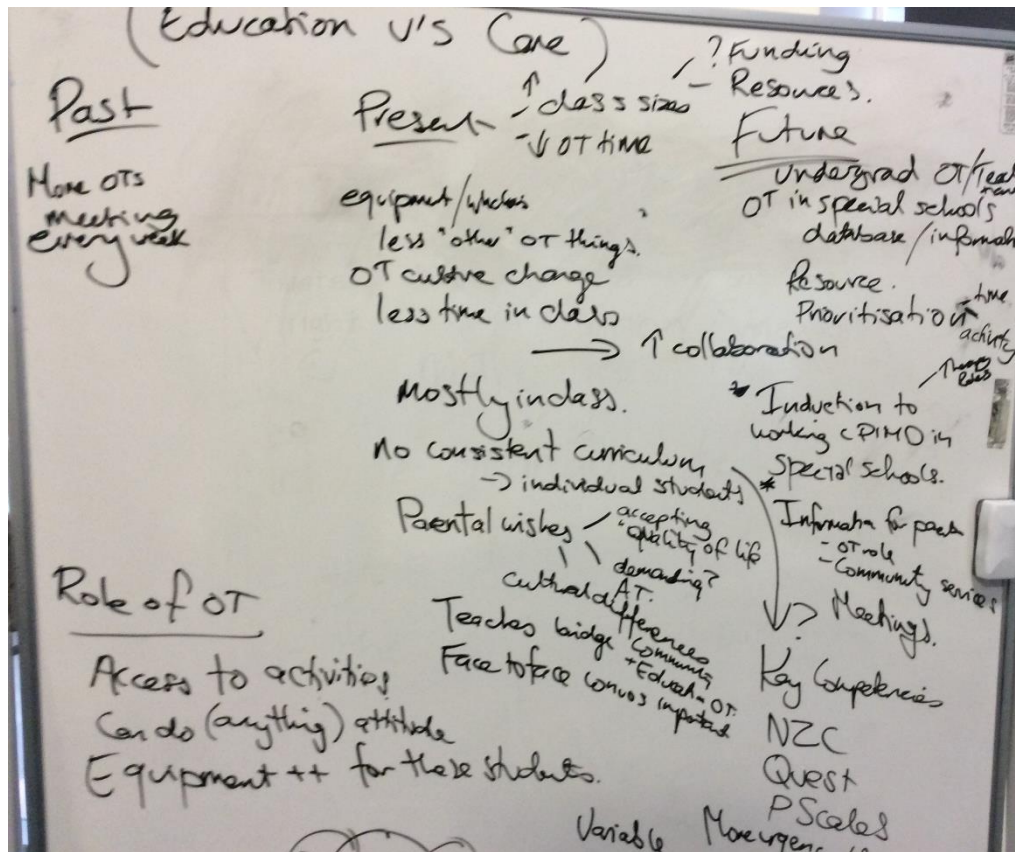 (Education V's Care)
Past
More OTs
meeting
every week
Present
- ↑ class sizes
- ↓ OT time
? Funding
- Resources.
equipment/
less "other" OT things.
OT culture change
less time in class
→ ↑ collaboration
Mostly in class.
No consistent curriculum
→ individual students
Parental wishes
accepting
"quality of life
demanding?
A.T.
cultural differences
Teaches bridge Community
+ Education OT.
Face to face convos important
Future
undergrad OT/
OT in special schools
database/
Resource.
Prioritisation
- time
activity
↑
* Induction to
working c PIMD in
special schools.
*
Information for
- OT role
- Community services
Meetings.
?
Key Competencies
NZC
Quest
P Scales
Variable
More
Role of OT
Access to activities
Can do (anything) attitude
Equipment ++ for these students.